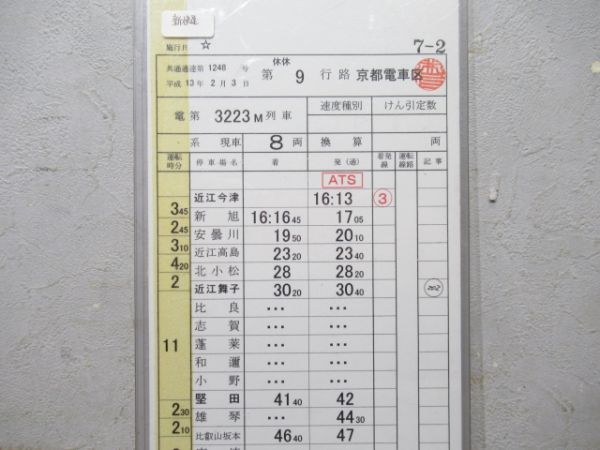 施行日 ☆ 7-2
共通通達第 1248 号
平成 13 年 2 月 3 日
休休
第 9 行路 京都電車区
電第 3223M列車 速度種別 けん引定数
系 現車 8両 換算 両
運転時分 停車場名 着 発(通) 着発線 運転線路 記事
ATS
近江今津 16:13 ③
3 45 新旭 16:16 45 17 05
2 45 安曇川 19 50 20 10
3 10 近江高島 23 20 23 40
4 20 北小松 28 28 20
2 近江舞子 30 20 30 40
比良 ・・・ ・・・
志賀 ・・・ ・・・
11 蓬莱 ・・・ ・・・
和邇 ・・・ ・・・
小野 ・・・ ・・・
堅田 41 40 42
2 30 雄琴 ・・・ 44 30
2 10 比叡山坂本 46 40 47